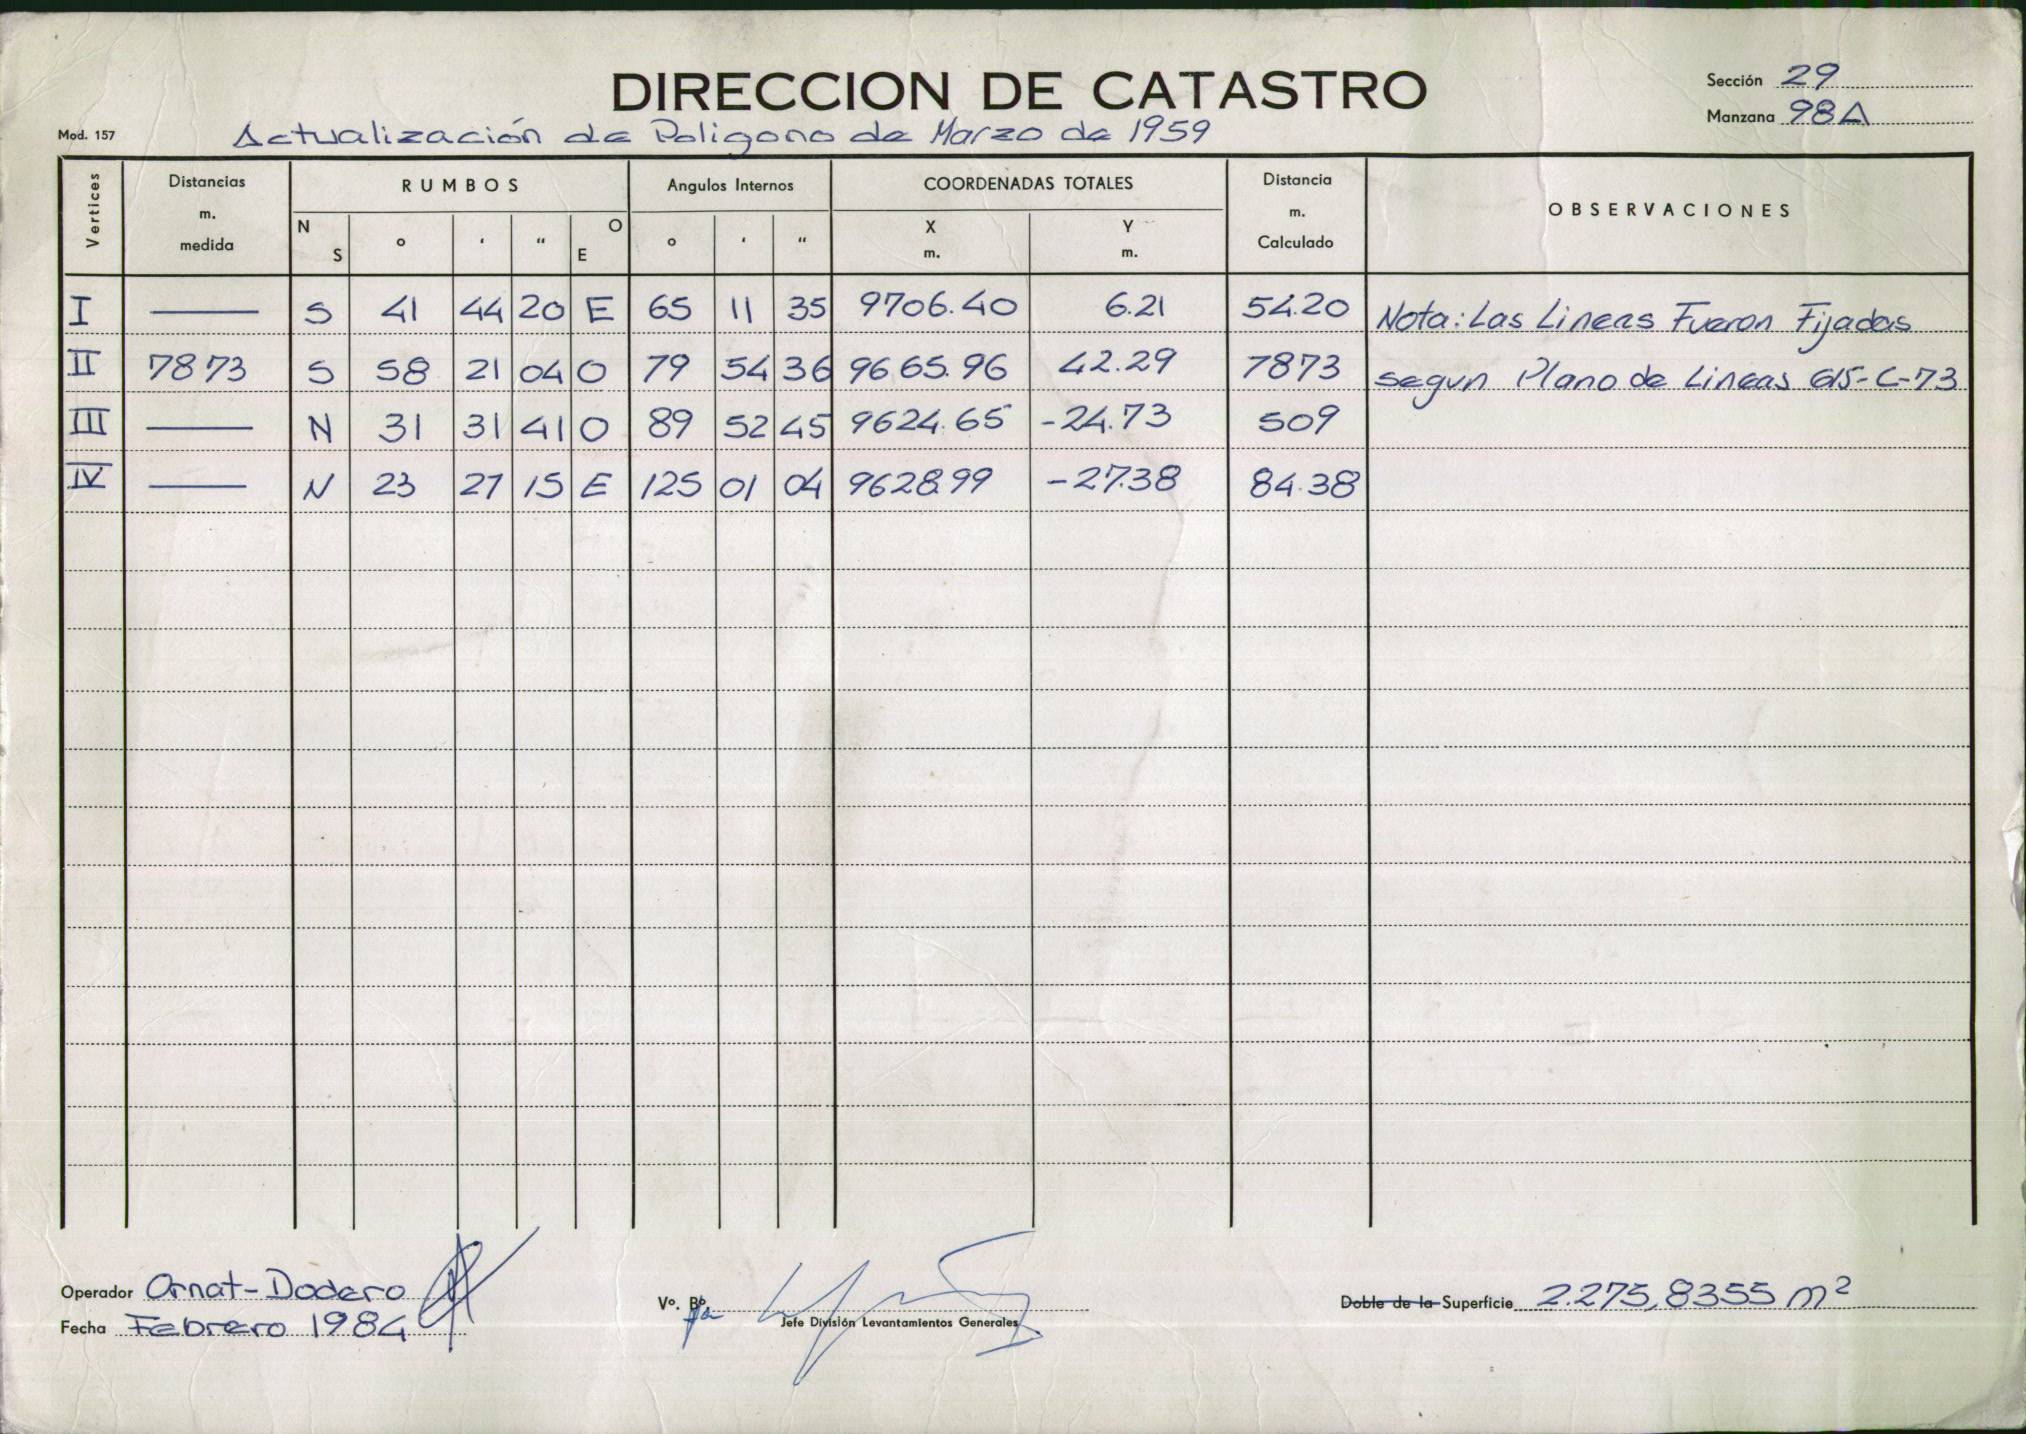 DIRECCION DE CATASTRO
Sección 29
Manzana 98A
Mod. 157
Actualización de Poligono de Marzo de 1959
Vertices | Distancias m. medida | RUMBOS | Angulos Internos | COORDENADAS TOTALES | Distancia m. Calculado | OBSERVACIONES
N S | o | ‘ | “ | O E | o | ‘ | “ | X m. | Y m.
I | — | S | 41 | 44 | 20 | E | 65 | 11 | 35 | 9706.40 | 6.21 | 54.20 | Nota: Las Lineas Fueron Fijadas
II | 7873 | S | 58 | 21 | 04 | O | 79 | 54 | 36 | 9665.96 | 42.29 | 7873 | segun Plano de Lineas 615-C-73
III | — | N | 31 | 31 | 41 | O | 89 | 52 | 45 | 9624.65 | -24.73 | 509
IV | — | N | 23 | 27 | 15 | E | 125 | 01 | 04 | 9628.99 | -27.38 | 84.38
Operador Ornat-Dodero
Fecha Febrero 1984
Vo. Bo.
Jefe División Levantamientos Generales
Doble de la Superficie 2.275,8355 m²